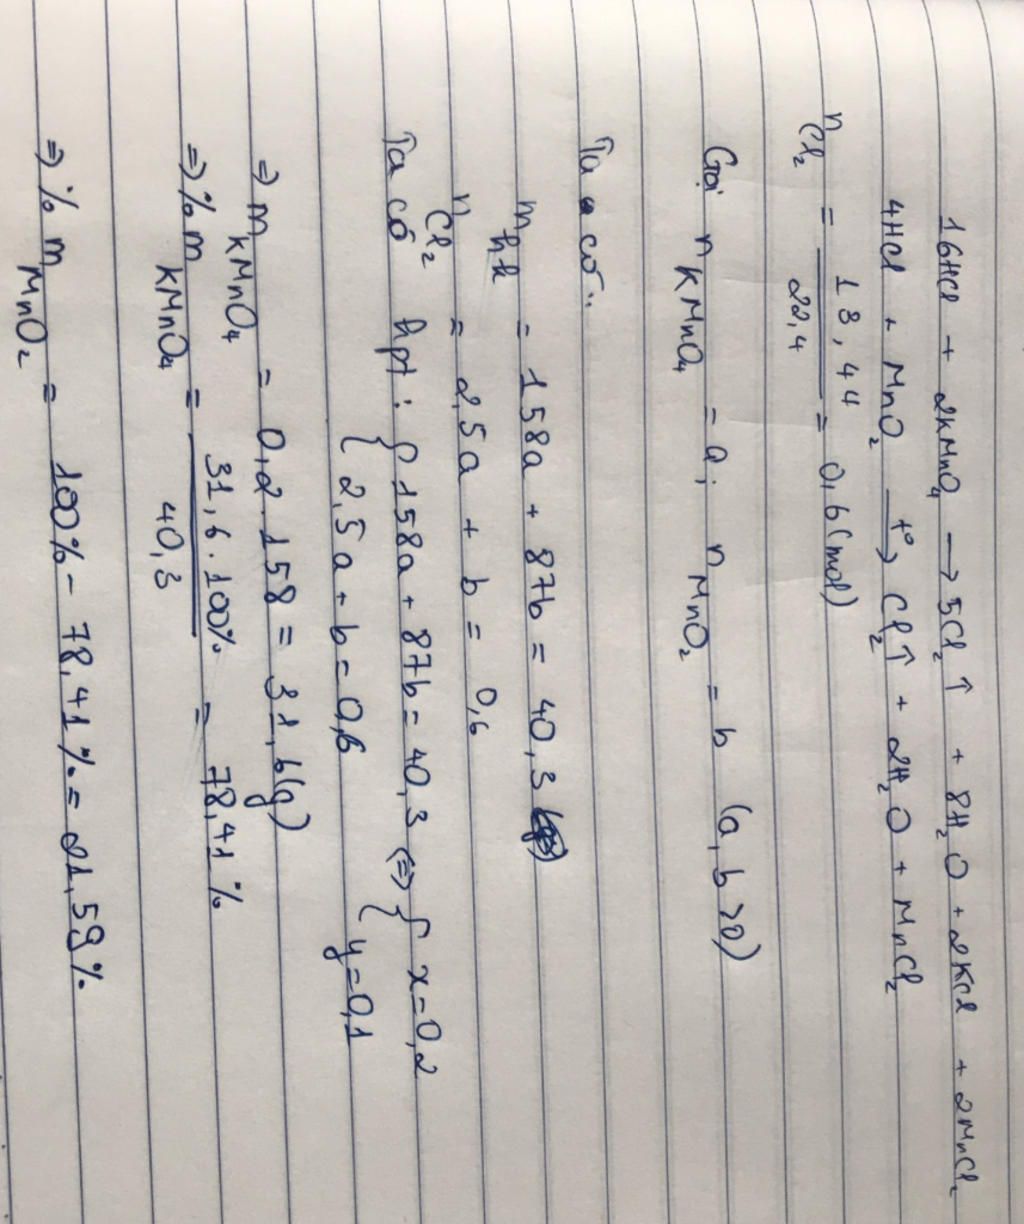 16HCl + 2KMnO₄ ⟶ 5Cl₂↑ + 8H₂O + 2KCl + 2MnCl₂
4HCl + MnO₂ —t°→ Cl₂↑ + 2H₂O + MnCl₂
n Cl₂ = 13,44 / 22,4 = 0,6 (mol)
Gọi n KMnO₄ = a; n MnO₂ = b (a, b >0)
Ta có:
m hh = 158a + 87b = 40,3
n Cl₂ = 2,5a + b = 0,6
Ta có hpt: { 158a + 87b = 40,3 ⇔ { x = 0,2
{ 2,5a + b = 0,6 y = 0,1
⇒ m KMnO₄ = 0,2.158 = 31,6(g)
⇒ % m KMnO₄ = 31,6.100% / 40,3 = 78,41%
⇒ % m MnO₂ = 100% - 78,41% = 21,59%